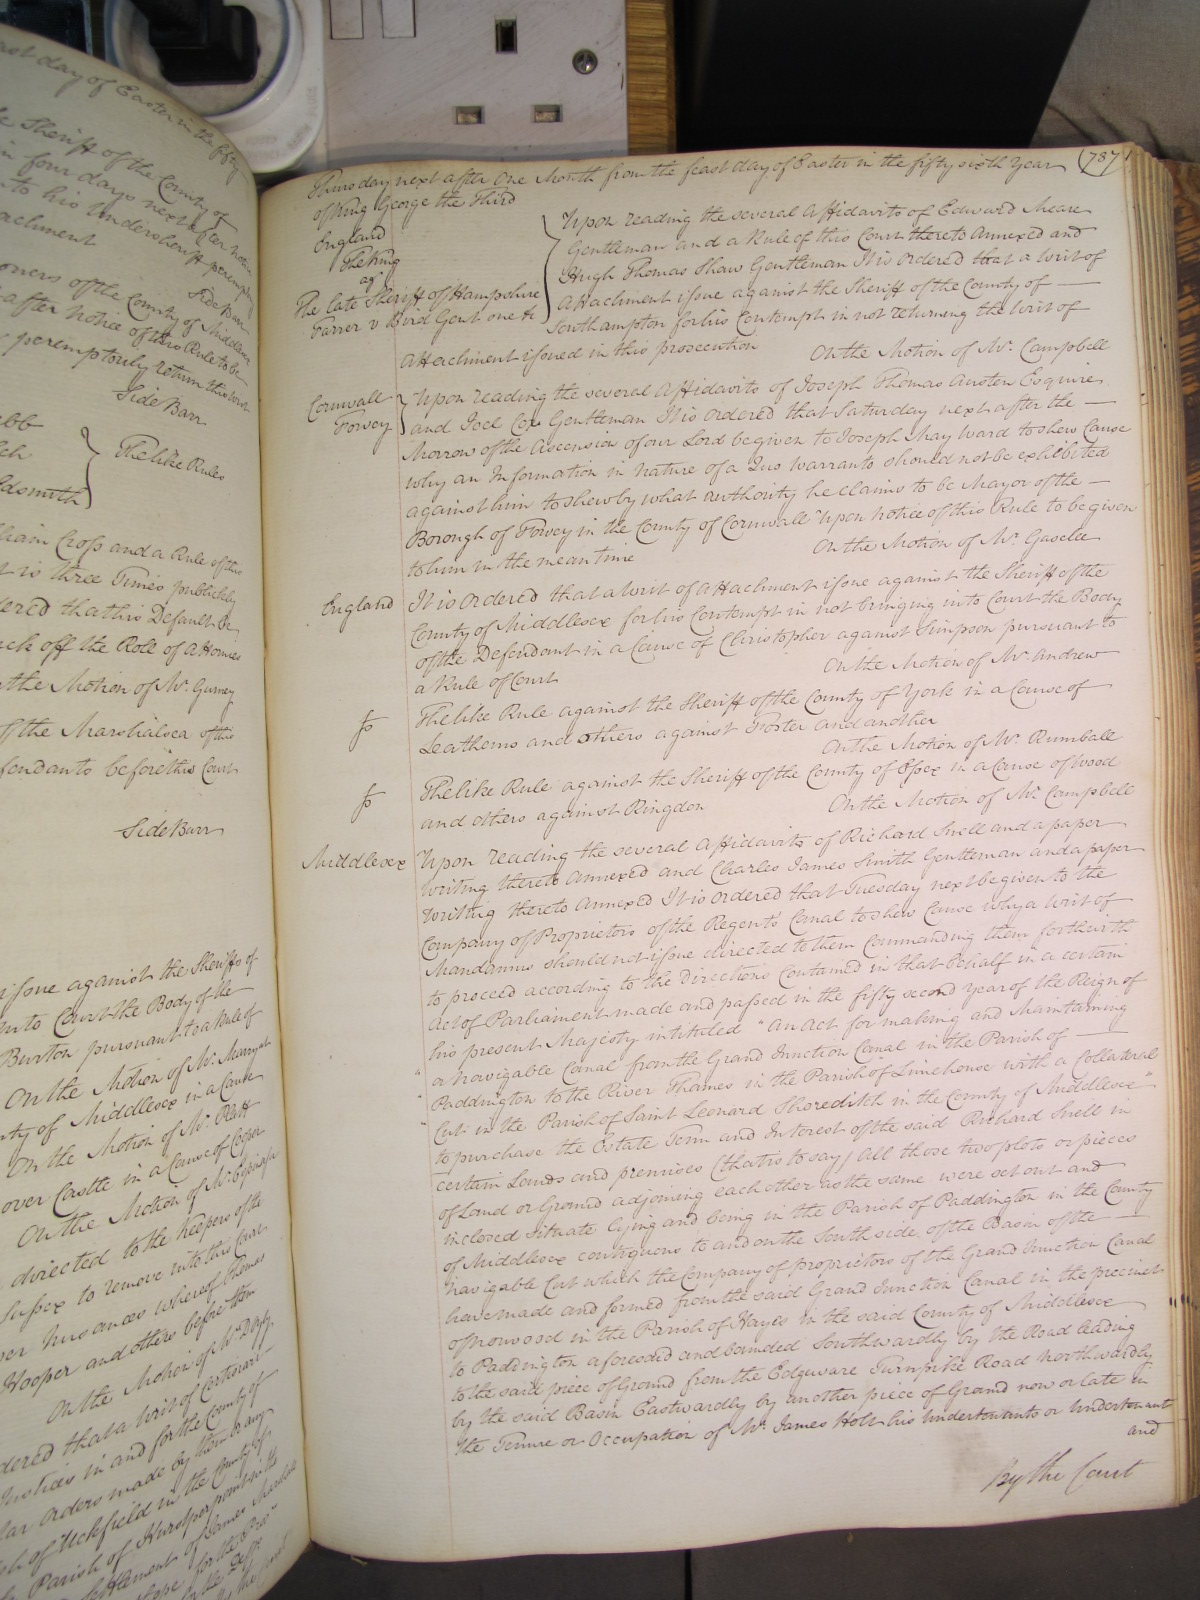 ast day of Easter in the fifty
e Sheriff of the County of
in four days next after notice
to his Undersheriff peremp
achment
Side Barr
oners of the County of Middlesex
after notice of this Rule to be
peremptorily return this Writ
Side Barr
ebb
ch
ldsmith
The like Rules
liam Cross and a Rule of this
t is three Times publickly
ered that his Default be
uck off the Roll of Attornies
n the Motion of Mr. Gurney
f the Marshalsea of this
fendants before this Court
Side Barr
issue against the Sheriffs of
into Court the Body of the
Burton pursuant to a Rule of
On the Motion of Mr. Marryat
nty of Middlesex in a Cause
On the Motion of Mr. Platt
over Castle in a Cause of Cooper
On the Motion of Mr. Espinasse
directed to the Keepers of the
Sussex to remove into this Court
per Nusances whereof Thomas
Hooper and others before them
On the Motion of Mr.
dered that a writ of Certiorari
Justices in and for the County of
lar Orders made by them or any
sh of Uckfield in the County of
Parish of Hurstperpoint in the
Settlement of James
(787)
Thursday next after One Month from the feast day of Easter in the fifty sixth Year
of King George the Third
England
The King
agt
The late Sheriff of Hampshire
Farrer v Bird Gent one &c
Upon reading the several Affidavits of Edward Meare
Gentleman and a Rule of this Court thereto Annexed and
Hugh Thomas Shaw Gentleman It is ordered that a Writ of
Attachment issue against the Sheriff of the County of
Southampton for his Contempt in not returning the Writ of
Attachment issued in this prosecution On the Motion of Mr. Campbell
Cornwall
Fowey
Upon reading the several Affidavits of Joseph Thomas Austen Esquire
and Joel Cox Gentleman It is ordered that Saturday next after the
Morrow of the Ascension of our Lord be given to Joseph May Ward to shew Cause
why an Information in nature of a Quo Warranto should not be exhibited
against him to shew by what authority he claims to be Mayor of the
Borough of Fowey in the County of Cornwall Upon notice of this Rule to be given
to him in the mean time On the Motion of Mr. Gaselee
England It is Ordered that a writ of Attachment issue against the Sheriff of the
County of Middlesex for his Contempt in not bringing into Court the Body
of the Defendant in a Cause of Christopher against Simpson pursuant to
a Rule of Court On the Motion of Mr. Andrew
So The like Rule against the Sheriff of the County of York in a Cause of
Leathems and others against Foster and another
On the Motion of Mr. Rumball
So The like Rule against the Sheriff of the County of Essex in a Cause of Wood
and others against Ringdon On the Motion of Mr. Campbell
Middlesex Upon reading the several Affidavits of Richard Snell and a paper
Writing thereto Annexed and Charles James Smith Gentleman and a paper
Writing thereto Annexed It is ordered that Tuesday next be given to the
Company of Proprietors of the Regents Canal to shew Cause why a Writ of
Mandamus should not issue directed to them Commanding them forthwith
to proceed according to the Directions Contained in that behalf in a certain
Act of Parliament made and passed in the fifty second Year of the Reign of
his present Majesty intituled "An Act for making and Maintaining
" a Navigable Canal from the Grand Junction Canal in the Parish of
" Paddington to the River Thames in the Parish of Limehouse with a Collateral
" Cut in the Parish of Saint Leonard Shoreditch in the County of Middlesex"
to purchase the Estate Term and Interest of the said Richard Snell in
certain Lands and premises (that is to say) All those two plots or pieces
of Land or Ground adjoining each other as the same were set out and
inclosed situate lying and being in the Parish of Paddington in the County
of Middlesex contiguous to and on the South side of the Basin of the
navigable Cut which the Company of proprietors of the Grand Junction Canal
have made and formed from the said Grand Junction Canal in the precinct
of Norwood in the Parish of Hayes in the said County of Middlesex
to Paddington aforesaid and bounded Southwardly by the Road leading
to the said piece of Ground from the Edgeware Turnpike Road Northwardly
by the said Basin Eastwardly by another piece of Ground now or late in
the Tenure or Occupation of Mr. James Holt his Undertenants or Undertenant
and
By the Court